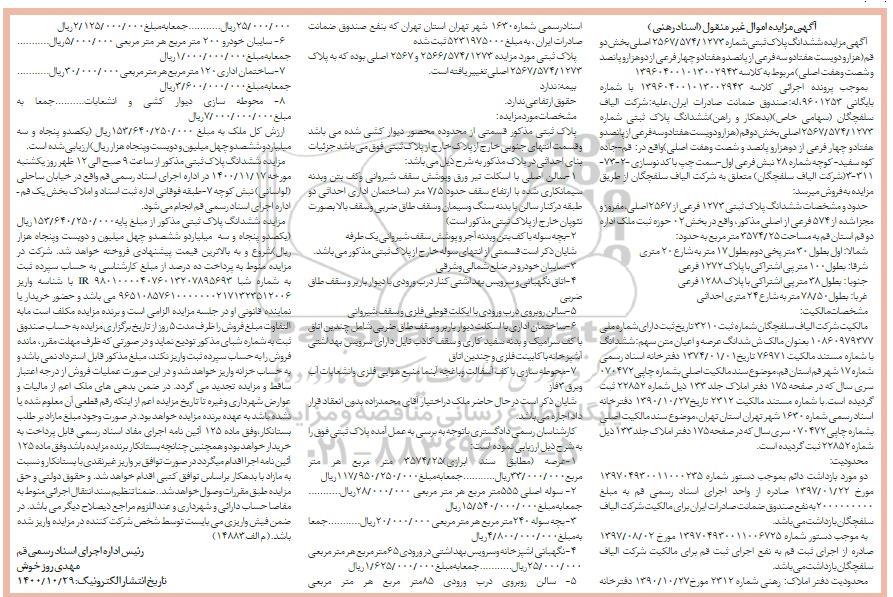 آگهی مزایده اموال غیر منقول (اسناد رهنی)
آگهی مزایده ششدانگ پلاک ثبتی شماره ۲۵۶۷/۵۷۴/۱۲۷۳ اصلی بخش دو
قم(هزار و دویست هفتاد و سه فرعی از پانصد و هفتاد و چهار فرعی از دو هزار و پانصد
و شصت و هفت اصلی) مربوط به کلاسه ۱۳۹۶۰۴۰۰۱۰۱۳۰۰۲۹۴۳
بموجب پرونده اجرائی کلاسه ۱۳۹۶۰۴۰۰۱۰۱۳۰۰۲۹۴۳ با شماره
بایگانی ۹۶۰۱۲۵۳،له:صندوق ضمانت صادرات ایران،علیه:شرکت الیاف
سلفچگان (سهامی خاص)(بدهکار و راهن)ششدانگ پلاک ثبتی شماره
۲۵۶۷/۵۷۴/۱۲۷۳ اصلی بخش دو قم(هزار و دویست هفتاد و سه فرعی از پانصد و
هفتاد و چهار فرعی از دو هزار و پانصد و شصت و هفت اصلی) واقع در: قم-جاده
کوه سفید- کوچه شماره ۲۸ نبش فرعی اول-سمت چپ با کد نوسازی ۲-۷۳-
۳-۳۱۱(شرکت الیاف سلفچگان) متعلق به شرکت الیاف سلفچگان از طریق
مزایده به فروش میرسد:
حدود و مشخصات ششدانگ پلاک ثبتی ۱۲۷۳ فرعی از ۲۵۶۷ اصلی،مفروز و
مجزا شده از ۵۷۴ فرعی از اصلی مذکور، واقع در بخش ۰۲ حوزه ثبت ملک اداره
دو قم استان قم به مساحت ۳۵۷۴/۲۵ متر مربع به حدود:
شمالا: اول بطول ۳۰ متر پخی دوم بطول ۱۷ متر به شارع ۲۰ متری
شرقا: بطول ۱۰۰ متر پی اشتراکی با پلاک ۱۲۷۲ فرعی
جنوبا: بطول ۳۸ متر پی اشتراکی با پلاک ۱۲۸۸ فرعی
غربا: بطول ۷۸/۵۰ متر به شارع ۲۴ متری احداثی
مشخصات مالکیت:
مالکیت شرکت الیاف سلفچگان شماره ثبت ۳۲۱۰ تاریخ ثبت دارای شماره ملی
۱۰۸۶۰۹۷۹۳۷۷ بعنوان مالک شش دانگ عرصه و اعیان متن سهم: ششدانگ
با شماره مستند مالکیت ۷۶۹۷۱ تاریخ ۱۳۷۴/۰۱/۰۱ دفترخانه اسناد رسمی
شماره ۱۷ شهر قم استان قم،موضوع سند مالکیت اصلی بشماره چاپی ۰۷۰۴۷۲
سری سال که در صفحه ۱۷۵ دفتر املاک جلد ۱۳۳ ذیل شماره ۲۲۸۵۲ ثبت
گردیده است.با شماره مستند مالکیت ۲۳۱۲ تاریخ ۱۳۹۰/۱۰/۲۷ دفترخانه
اسناد رسمی شماره ۱۶۳۰ شهر تهران استان تهران،موضوع سند مالکیت اصلی
بشماره چاپی ۰۷۰۴۷۲ سری سال که در صفحه ۱۷۵ دفتر املاک جلد ۱۳۳ ذیل
شماره ۲۲۸۵۲ ثبت گردیده است.
محدودیت:
دو مورد بازداشت دائم بموجب دستور شماره ۱۳۹۷۰۴۹۳۰۰۱۱۰۰۰۲۳۵
مورخ ۱۳۹۷/۰۱/۲۲ صادره از واحد اجرای اسناد رسمی قم به مبلغ
۲۰۰۰۰۰۰۰۰۰ به نفع صندوق ضمانت صادرات ایران برای مالکیت شرکت الیاف
سلفچگان بازداشت می باشد.
به موجب دستور شماره ۱۳۹۷۰۴۹۳۰۰۱۱۰۰۶۷۲۵ مورخ ۱۳۹۷/۰۸/۰۲
صادره از اجرای ثبت قم به نفع اجرای ثبت قم برای مالکیت شرکت الیاف
سلفچگان بازداشت می باشد.
محدودیت دفتر املاک: رهنی شماره ۲۳۱۲ مورخ ۱۳۹۰/۱۰/۲۷ دفترخانه
اسناد رسمی شماره ۱۶۳۰ شهر تهران استان تهران که بنفع صندوق ضمانت
صادرات ایران، به مبلغ ۵۲۳۱۹۷۵۰۰۰ ثبت شده
پلاک ثبتی مورد مزایده ۲۵۶۶/۵۷۴/۱۲۷۳ و ۲۵۶۷ اصلی بوده که به پلاک
۲۵۶۷/۵۷۴/۱۲۷۳ اصلی تغییر یافته است.
بیمه:ندارد
حقوق ارتفاعی ندارد.
مشخصات مورد مزایده:
پلاک ثبتی مذکور قسمتی از محدوده محصور دیوار کشی شده می باشد
و قسمت انتهای جنوبی خارج از پلاک،خارج از پلاک ثبتی فوق می باشد جزئیات
بنای احداثی در پلاک مذکور به شرح ذیل می باشد:
۱-سالن اصلی با اسکلت تیر ورق و پوشش سقف شیروانی و کف بتن و بدنه
سیمانکاری شده با ارتفاع سقف حدود ۷/۵ متر (ساختمان اداری احداثی دو
طبقه در کنار سالن با بدنه سنگ و سیمان و سقف طاق ضربی و سقف بالا بصورت
نئوپان خارج از پلاک ثبتی مذکور است)
۲-بچه سوله با کف بتن و بدنه آجر و پوشش سقف شیروانی یک طرفه
شایان ذکر است قسمتی از انتهای سوله خارج از پلاک ثبتی مذکور می باشد.
۳-سایبان خودرو در ضلع شمالی و شرقی
۴-اتاق نگهبانی و سرویس بهداشتی کنار درب ورودی با دیوار باربر و سقف طاق
ضربی
۵-سالن روبروی درب ورودی با اسکلت قوطی فلزی و سقف شیروانی
۶-ساختمان اداری با اسکلت دیوار باربر و سقف طاق ضربی شامل چندین اتاق
با کف سرامیک و بدنه سفید کاری و سقف کاذب تایل دارای سرویس بهداشتی
آشپزخانه با کابینت فلزی و چندین اتاق
۷-محوطه سازی با کف آسفالت و باغچه آبنما منبع هوایی فلزی و انشعابات آب
وبرق ۳ فاز
شایان ذکر است در حال حاضر ملک در اختیار آقای محمدزاده بدون انعقاد قرار
داد اجاره می باشد.
کارشناسان رسمی دادگستری باتوجه به برسی به عمل آمده پلاک ثبتی فوق را
به شرح ذیل ارزیابی نموده است:
۱-عرصه (مطابق سند ابرازی)۳۵۷۴/۲۵ متر مربع هر متر
مربع ۳۳/۰۰۰/۰۰۰ریال...........جمعابه‌مبلغ ۱۱۷/۹۵۰/۲۵۰/۰۰۰ریال
۲- سوله اصلی ۵۵۵متر مربع هر متر مربعی ۲۸/۰۰۰/۰۰۰ریال..........
جمعابه‌مبلغ ۱۵/۵۴۰/۰۰۰/۰۰۰ریال
۳-بچه سوله ۲۴۰متر مربع هر متر مربعی ۲۰/۰۰۰/۰۰۰ریال..........جمعا
به‌مبلغ ۴/۸۰۰/۰۰۰/۰۰۰ریال
۴-نگهبانی آشپزخانه وسرویس بهداشتی در ورودی ۶۵متر مربع هر متر مربعی
۲۵/۰۰۰/۰۰۰ریال..........جمعابه‌مبلغ ۱/۶۲۵/۰۰۰/۰۰۰ریال
۵- سالن روبروی درب ورودی ۸۵متر مربع هر متر مربعی
۲۵/۰۰۰/۰۰۰ریال...........جمعابه‌مبلغ ۲/۱۲۵/۰۰۰/۰۰۰ریال
۶- سایبان خودرو ۲۰۰ متر مربع هر متر مربعی ۵/۰۰۰/۰۰۰ریال..........
جمعابه‌مبلغ ۱/۰۰۰/۰۰۰/۰۰۰ریال
۷-ساختمان اداری ۱۲۰ متر مربع هر متر مربعی ۳۰/۰۰۰/۰۰۰ریال..........
جمعابه‌مبلغ ۳/۶۰۰/۰۰۰/۰۰۰ریال
۸- محوطه سازی دیوار کشی و انشعابات..........جمعا به
مبلغ ۷/۰۰۰/۰۰۰/۰۰۰ریال
ارزش کل ملک به مبلغ ۱۵۳/۶۴۰/۲۵۰/۰۰۰ریال (یکصدو پنجاه و سه
میلیارد و ششصد و چهل میلیون و دویست و پنجاه هزار ریال) ارزیابی شده است.
مزایده ششدانگ پلاک ثبتی مذکور از ساعت ۹ صبح الی ۱۲ ظهر روز یکشنبه
مورخه ۱۴۰۰/۱۱/۱۷ در اداره اجرای اسناد رسمی قم واقع در خیابان ساحلی
(لواسانی) نبش کوچه ۷-طبقه فوقانی اداره ثبت اسناد و املاک بخش یک قم-
اداره اجرای اسناد رسمی قم انجام می شود.
مزایده ششدانگ پلاک ثبتی مذکور از مبلغ پایه ۱۵۳/۶۴۰/۲۵۰/۰۰۰ریال
(یکصدو پنجاه و سه میلیاردو ششصدو چهل میلیون و دویست و پنجاه هزار
ریال)شروع و به بالاترین قیمت پیشنهادی فروخته خواهد شد. شرکت در
مزایده منوط به پرداخت ده درصد از مبلغ کارشناسی به حساب سپرده ثبت
به شماره شبا IR ۹۸۰۱۰۰۰۰۴۰۷۶۰۱۳۲۰۷۸۹۵۶۹۳ با شناسه واریز
۹۶۵۱۰۸۵۷۶۱۰۰۰۰۰۰۲۱۷۱۳۲۳۵۱۲۰۰۶ می باشد و حضور خریدار یا
نماینده قانونی او در جلسه مزایده الزامی است و برنده مزایده مکلف است مابه
التفاوت مبلغ فروش را ظرف مدت ۵ روز از تاریخ برگزاری مزایده به حساب صندوق
ثبت به شماره شبای مذکور تودیع نماید و در صورتی که ظرف مهلت مقرر، مانده
فروش را به حساب سپرده ثبت واریز نکند، مبلغ مذکور قابل استرداد نمی باشد و
به حساب خزانه واریز خواهد شد و در این صورت عملیات فروش از درجه اعتبار
ساقط و مزایده تجدید می گردد. در ضمن بدهی های ملک اعم از مالیات و
عوارض شهرداری وغیره تا تاریخ مزایده اعم از اینکه رقم قطعی آن معلوم شده یا
نشده باشد به عهده برنده مزایده خواهد بود.در صورت وجود مبلغ مازاد بر طلب
بستانکار،وفق ماده ۱۲۵ آئین نامه اجرای مفاد اسناد رسمی قابل پرداخت به
خریدار خواهد بود و همچنین چنانچه بستانکار برنده مزایده باشد وفق ماده ۱۲۵
آئین نامه اجرا اقدام میگردد در صورت توافق بر واریز غیر نقدی با بستانکار و نسبت
به مازاد با بدهکار بر اساس توافق کتبی اقدام خواهد شد. و حقوق دولتی و حق
مزایده طبق مقررات وصول خواهد شد..ضمنا تنظیم سند انتقال اجرائی منوط به
مفاصا حساب دارائی و شهرداری و عنداللزوم مراجع ذیصلاح دیگر می باشد. در
ضمن فیش واریزی می بایست توسط شخص شرکت کننده در مزایده واریز شده
باشد. (م الف ۱۴۸۸۳)
رئیس اداره اجرای اسناد رسمی قم
مهدی روز خوش
تاریخ انتشار الکترونیک: ۱۴۰۰/۱۰/۲۹